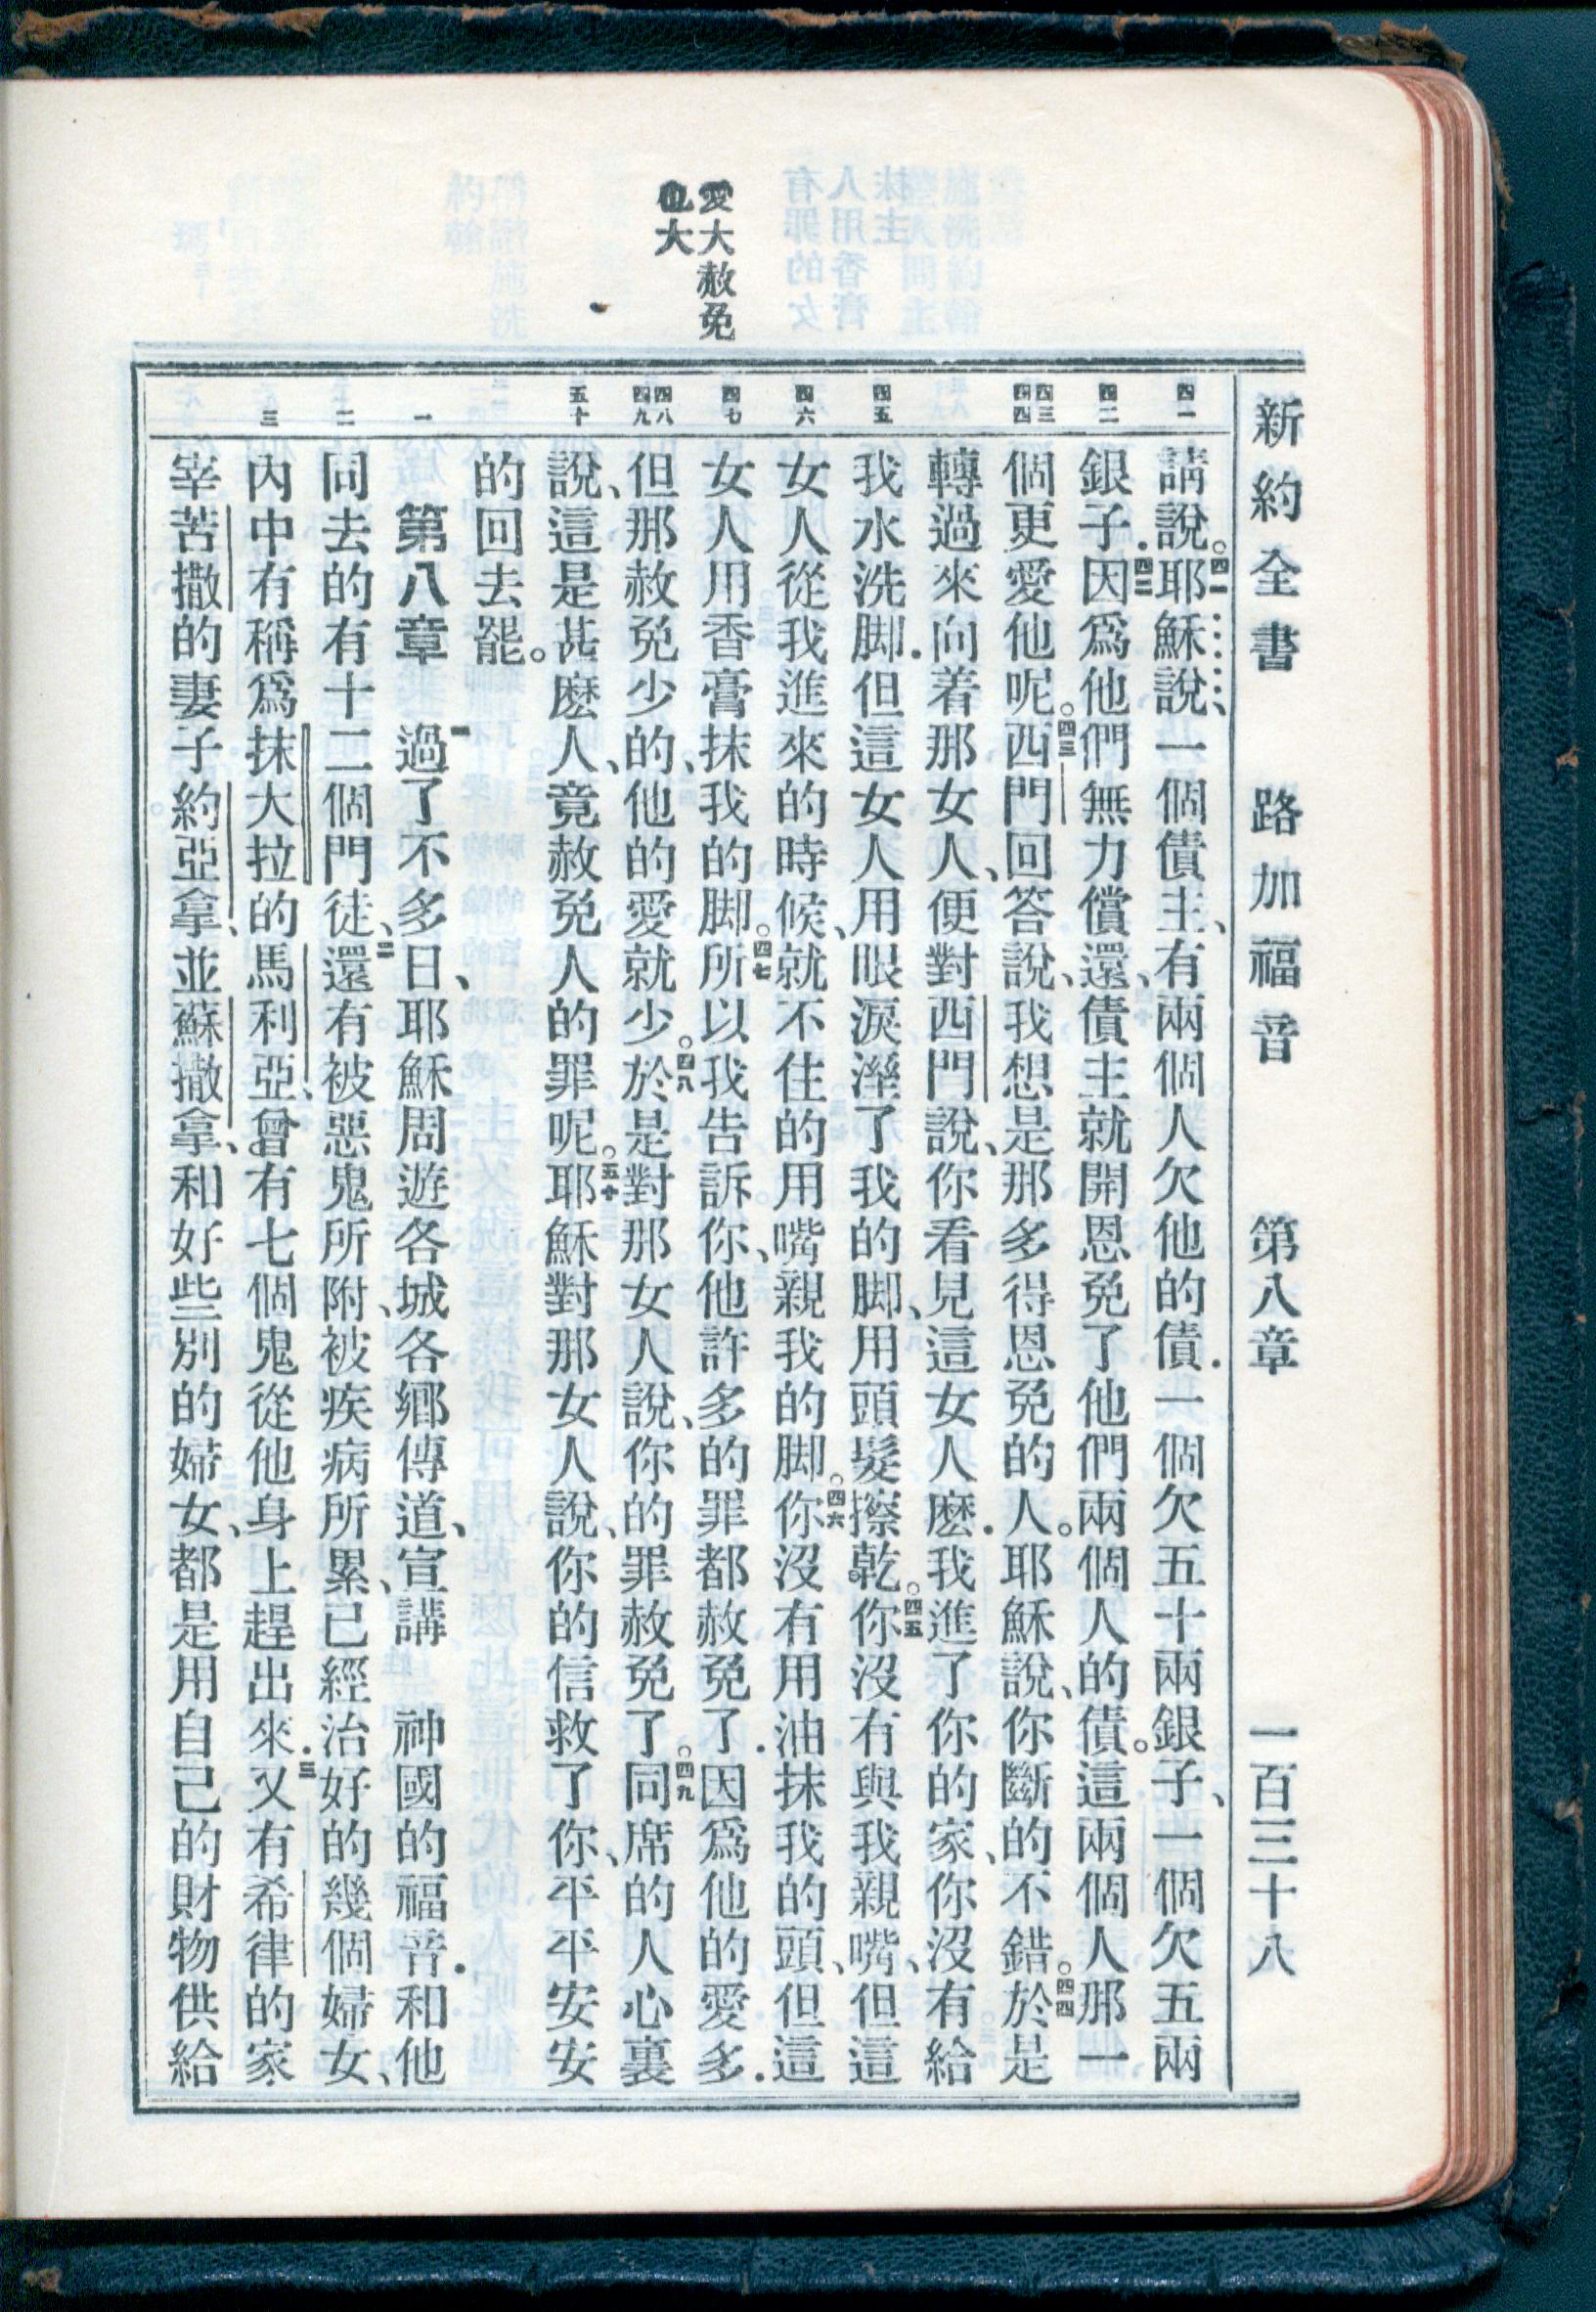 新約全書 路加福音 第八章 一百三十八
愛大赦免
也大
四一
四二
四三
四四
四五
四六
四七
四八
四九
五十
一
二
三
請說。四一耶穌說、一個債主、有兩個人欠他的債．一個欠五十兩銀子、一個欠五兩
銀子．四二因爲他們無力償還、債主就開恩免了他們兩個人的債。這兩個人那一
個更愛他呢。四三西門回答說、我想是那多得恩免的人。耶穌說、你斷的不錯。四四於是
轉過來向着那女人、便對西門說、你看見這女人麽．我進了你的家、你沒有給
我水洗脚．但這女人用眼淚溼了我的脚、用頭髮擦乾。四五你沒有與我親嘴、但這
女人從我進來的時候、就不住的用嘴親我的脚。四六你沒有用油抹我的頭、但這
女人用香膏抹我的脚。四七所以我告訴你、他許多的罪都赦免了．因爲他的愛多．
但那赦免少的、他的愛就少。四八於是對那女人說、你的罪赦免了。四九同席的人心裏
說、這是甚麽人、竟赦免人的罪呢。五十耶穌對那女人說、你的信救了你、平平安安
的回去罷。
第八章 一過了不多日、耶穌周遊各城各鄉傳道、宣講 神國的福音．和他
同去的有十二個門徒、二還有被惡鬼所附、被疾病所累、已經治好的幾個婦女、
內中有稱爲抹大拉的馬利亞、曾有七個鬼從他身上趕出來．三又有希律的家
宰苦撒的妻子約亞拿、並蘇撒拿、和好些別的婦女、都是用自己的財物供給